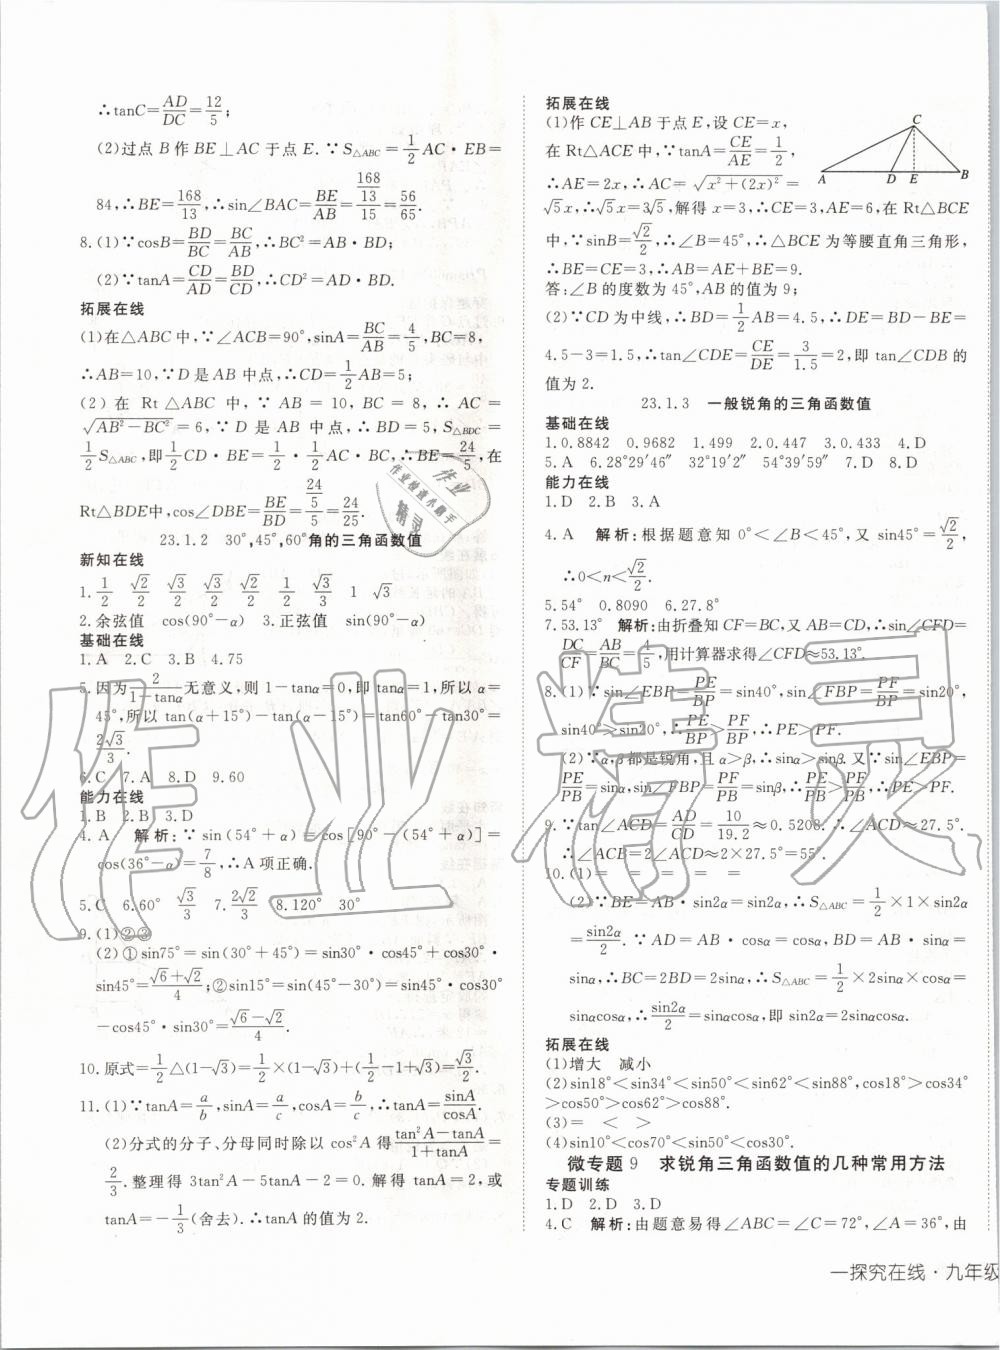 ∴tanC=AD/DC=12/5;
(2)过点 B 作 BE⊥AC 于点 E.∵S△ABC=1/2 AC·EB=
84,∴BE=168/13,∴sin∠BAC=BE/AB=(168/13)/15=56/65.
8.(1)∵cosB=BD/BC=BC/AB,∴BC²=AB·BD;
(2)∵tanA=CD/AD=BD/CD,∴CD²=AD·BD.
拓展在线
(1)在△ABC中,∵∠ACB=90°,sinA=BC/AB=4/5,BC=8,
∴AB=10,∵D 是 AB 中点,∴CD=1/2 AB=5;
(2) 在 Rt△ABC 中,∵ AB = 10, BC = 8,∴ AC =
√(AB²−BC²)=6,∵ D 是 AB 中点,∴ BD=5,S△BDC=
1/2 S△ABC,即1/2 CD·BE=1/2·1/2 AC·BC,∴BE=24/5,在
Rt△BDE中,cos∠DBE=BE/BD=(24/5)/5=24/25.
23.1.2 30°,45°,60°角的三角函数值
新知在线
1.1/2 √2/2 √3/2 √3/2 √2/2 1/2 √3/3 1 √3
2.余弦值 cos(90°−α) 3.正弦值 sin(90°−α)
基础在线
1.A 2.C 3.B 4.75
5.因为2/(1−tanα)无意义,则1−tanα=0,即tanα=1,所以α=
45°,所以 tan(α+15°)−tan(α−15°)=tan60°−tan30°=
2√3/3.
6.C 7.A 8.D 9.60
能力在线
1.B 2.B 3.D
4.A 解析:∵sin(54°+α)=cos[90°−(54°+α)]=
cos(36°−α)=7/8,∴A 项正确.
5.C 6.60° √3/3 7.2√2/3 8.120° 30°
9.(1)②③
(2)①sin75°=sin(30°+45°)=sin30°·cos45°+cos30°·
sin45°=(√6+√2)/4;②sin15°=sin(45°−30°)=sin45°·cos30°
−cos45°·sin30°=(√6−√2)/4.
10.原式=1/2△(1−√3)=1/2×(1−√3)+(−1+√3)=√3/2.
11.(1)∵tanA=a/b,sinA=a/c,cosA=b/c,∴tanA=sinA/cosA.
(2)分式的分子、分母同时除以 cos²A 得(tan²A−tanA)/(1+tanA)=
2/3.整理得 3tan²A−5tanA−2=0.解得 tanA=2,或
tanA=−1/3(舍去).∴tanA 的值为 2.
拓展在线
(1)作 CE⊥AB 于点 E,设 CE=x,
在 Rt△ACE 中,∵tanA=CE/AE=1/2,
∴AE=2x,∴AC=√(x²+(2x)²)=
√5x,∴√5x=3√5,解得 x=3,∴CE=3,AE=6,在 Rt△BCE
中,∵sinB=√2/2,∴∠B=45°,∴△BCE 为等腰直角三角形,
∴BE=CE=3,∴AB=AE+BE=9.
答:∠B 的度数为 45°,AB 的值为 9;
(2)∵CD 为中线,∴BD=1/2 AB=4.5,∴DE=BD−BE=
4.5−3=1.5,∴tan∠CDE=CE/DE=3/1.5=2,即 tan∠CDB 的
值为 2.
C
A D E B
23.1.3 一般锐角的三角函数值
基础在线
1.0.8842 0.9682 1.499 2.0.447 3.0.433 4.D
5.A 6.28°29′46″ 32°19′2″ 54°39′59″ 7.D 8.D
能力在线
1.D 2.B 3.A
4.A 解析:根据题意知 0°<∠B<45°,又 sin45°=√2/2,
∴0<n<√2/2.
5.54° 0.8090 6.27.8°
7.53.13° 解析:由折叠知 CF=BC,又 AB=CD,∴sin∠CFD=
DC/CF=AB/BC=4/5,用计算器求得∠CFD≈53.13°.
8.(1)∵sin∠EBP=PE/BP=sin40°,sin∠FBP=PF/BP=sin20°,
sin40°>sin20°,∴PE/BP>PF/BP,∴PE>PF.
(2)∵α,β都是锐角,且α>β,∴sinα>sinβ.又∵sin∠EBP=
PE/BP=sinα,sin∠FBP=PF/BP=sinβ,∴PE/BP>PF/BP,∴PE>PF.
9.∵tan∠ACD=AD/CD=10/19.2≈0.5208.∴∠ACD≈27.5°.
∴∠ACB=2∠ACD≈2×27.5°=55°.
10.(1)= = = = =
(2)∵BE=AB·sin2α=sin2α,∴S△ABC=1/2×1×sin2α
=sin2α/2.∵AD=AB·cosα=cosα,BD=AB·sinα=
sinα,∴BC=2BD=2sinα,∴S△ABC=1/2×2sinα×cosα=
sinαcosα,∴sin2α/2=sinαcosα,即 sin2α=2sinαcosα.
拓展在线
(1)增大 减小
(2)sin18°<sin34°<sin50°<sin62°<sin88°,cos18°>cos34°
>cos50°>cos62°>cos88°.
(3)= < >
(4)sin10°<cos70°<sin50°<cos30°.
微专题 9 求锐角三角函数值的几种常用方法
专题训练
1.D 2.D 3.D
4.C 解析:由题意易得∠ABC=∠C=72°,∠A=36°,由
一探究在线·九年级
作业检查小助手
作业
精灵
作业精灵